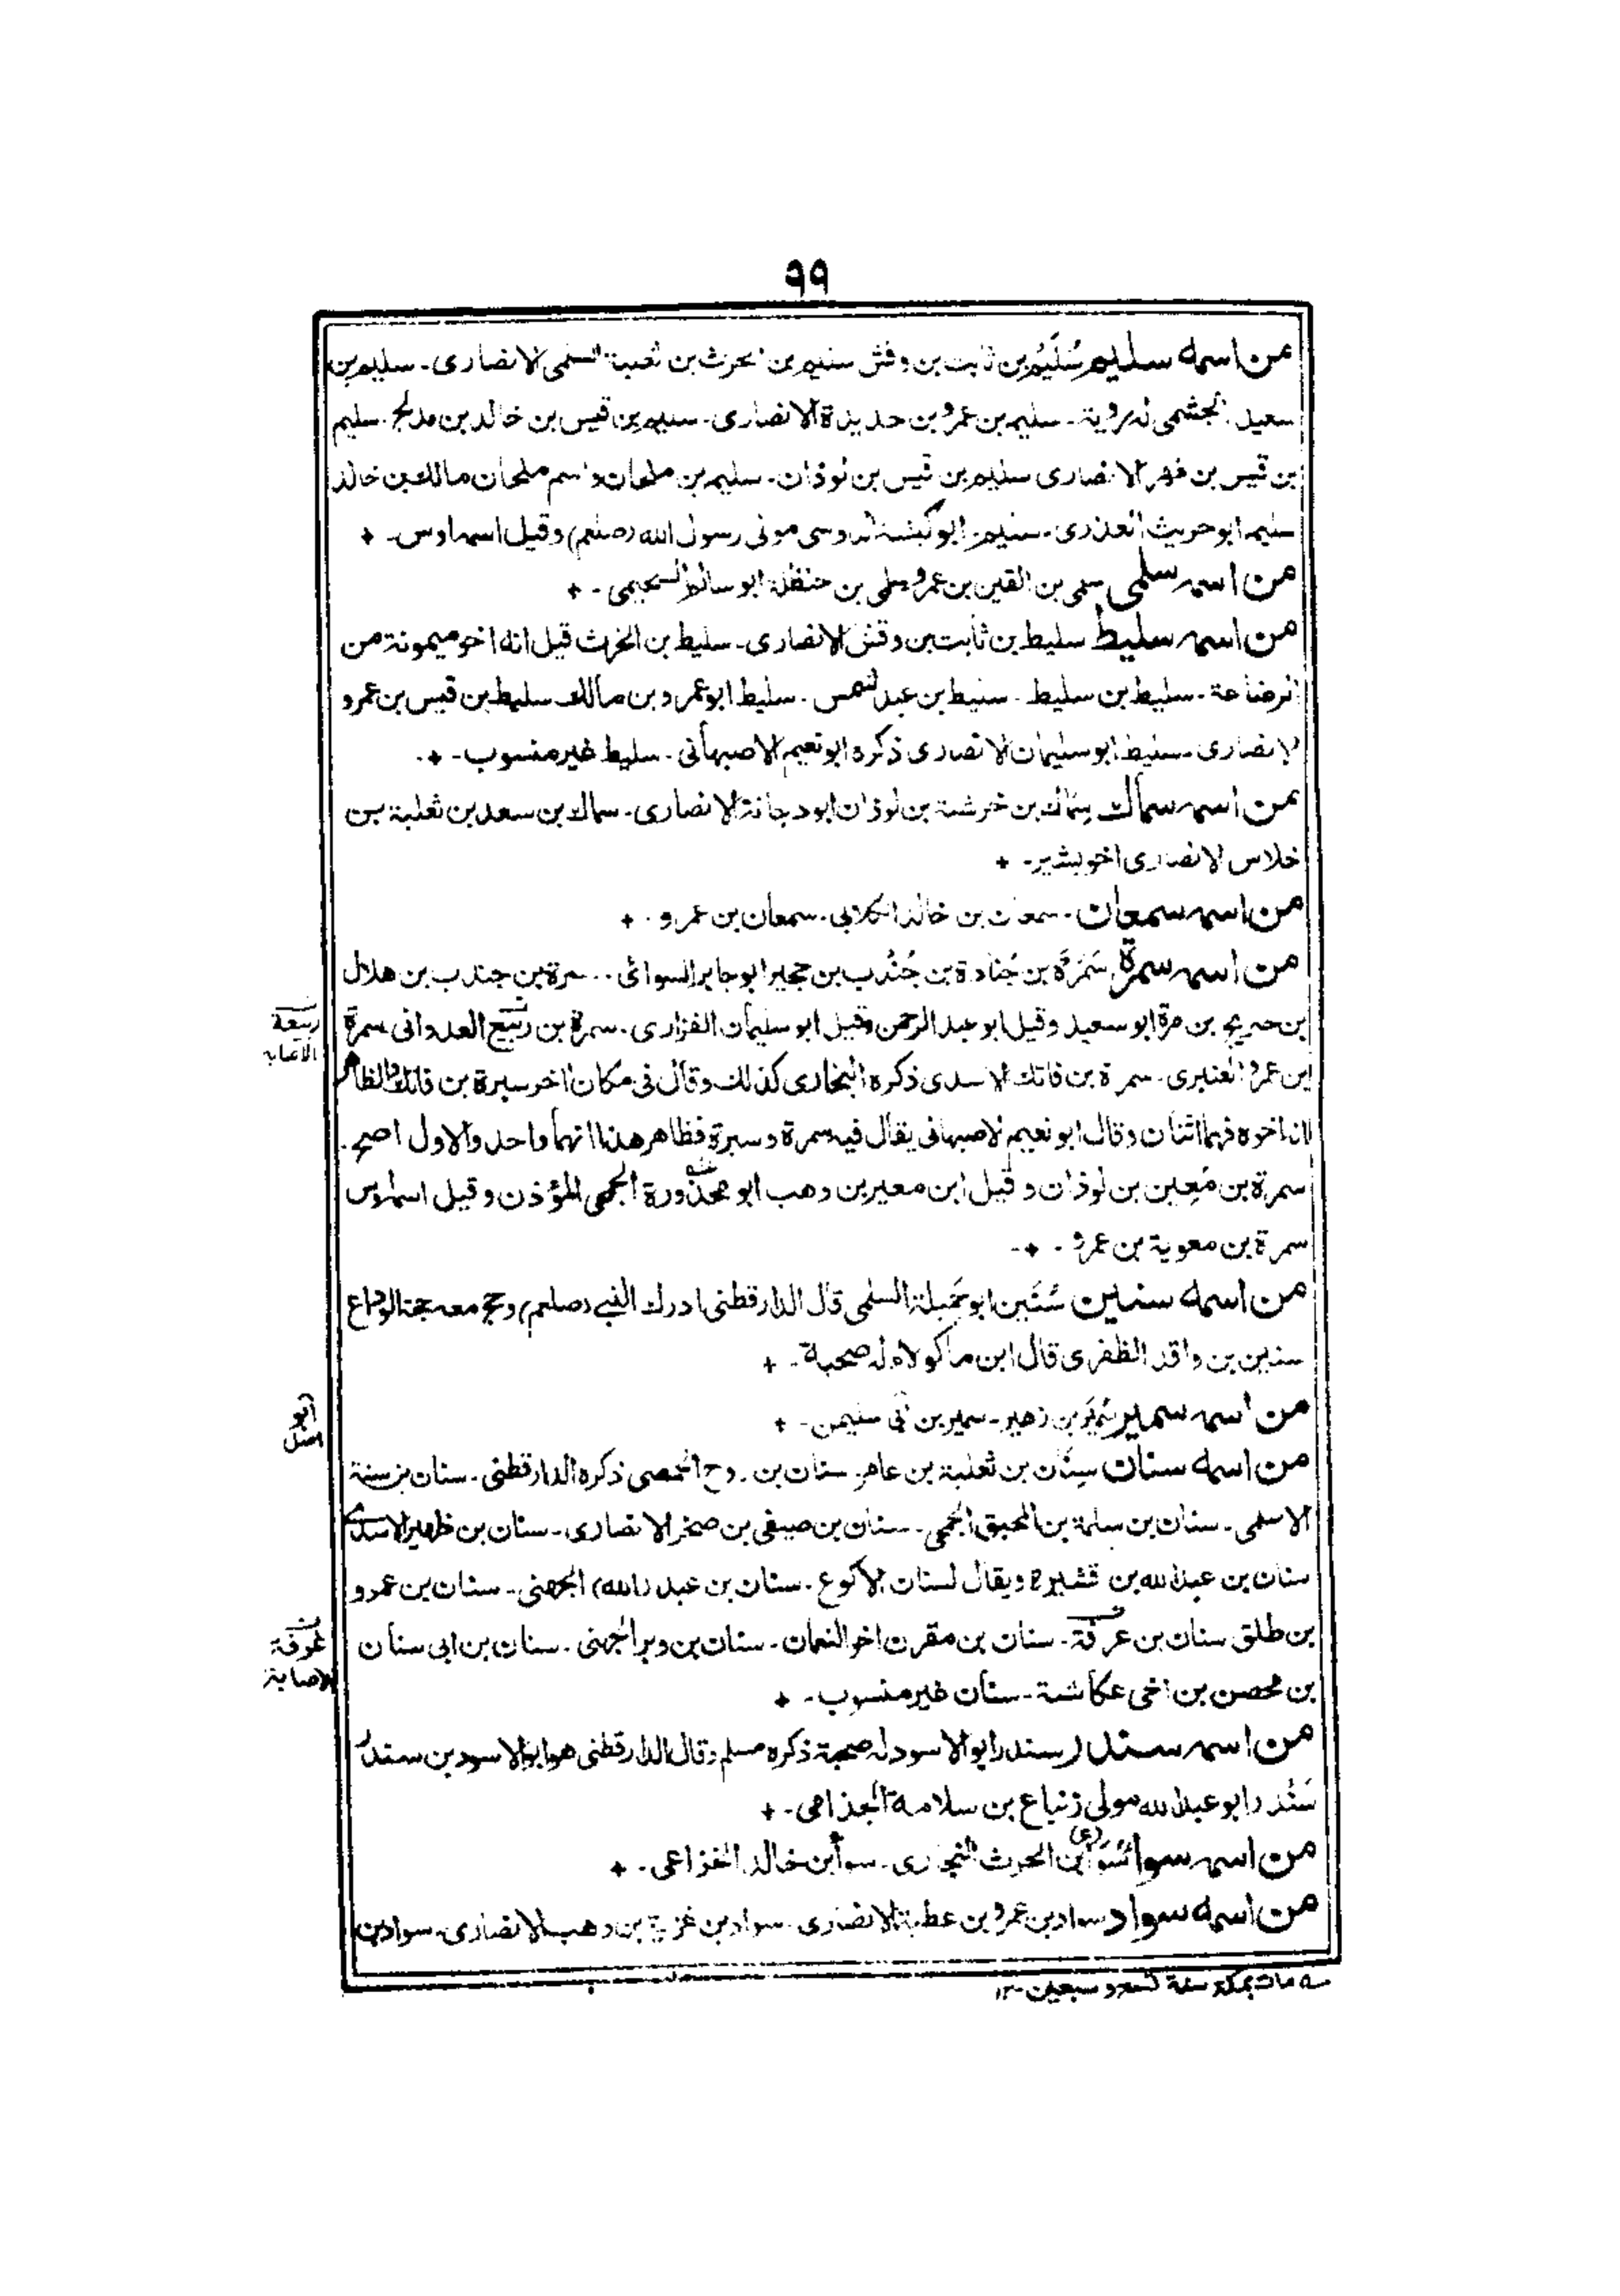 ٩٩
من اسمه سليم سُلَيْم بن ثابت بن وقش سليم بن الحرث بن ثعلبة السلمى الانصارى۔ سليم بن
سعيد الجشمى له روية۔ سليم بن عمرو بن حديدة الانصارى۔ سليم بن قيس بن خالد بن مدلج۔ سليم
بن قيس بن فهر الانصارى سليم بن قيس بن لوذان۔ سليم بن ملحان واسم ملحان مالك بن خالد
سليم ابو حريث العذرى۔ سليم ابو كبشة الدوسى مولى رسول الله (صلعم) وقيل اسمه اوس۔ +
من اسمه سلمى سلمى بن القين بن عمرو سلمى بن حنظلة ابو سالم السحيمى۔ +
من اسمه سليط سليط بن ثابت بن وقش الانصارى۔ سليط بن الحرث قيل انه اخو ميمونة من
الرضاعة۔ سليط بن سليط۔ سليط بن عبد شمس۔ سليط ابو عمرو بن مالك سليط بن قيس بن عمرو
الانصارى۔ سليط ابو سليمان الانصارى ذكره ابو نعيم الاصبهانى۔ سليط غير منسوب۔ +
من اسمه سماك سِمَاك بن خرشة بن لوذان ابو دجانة الانصارى۔ سماك بن سعد بن ثعلبة بن
خلاس الانصارى اخو بشير۔ +
من اسمه سمعان۔ سمعان بن خالد الكلابى۔ سمعان بن عمرو۔ +
من اسمه سمرة سَمُرَة بن جُنادة بن جُنْدُب بن حجير ابو جابر السوائى۔۔ سمرة بن جندب بن هلال
بن حريج بن مرة ابو سعيد وقيل ابو عبد الرحمن وقيل ابو سليمان الفزارى۔ سمرة بن ربيع العدوانى سمرة
ربيعة
الاصابه
ابن عمرو العنبرى۔ سمرة بن فاتك الاسدى ذكره البخارى كذلك وقال فى مكان اخر سبرة بن فاتك والظاهر
انه اخوه فهما اثنان وقال ابو نعيم الاصبهانى يقال فيه سمرة وسبرة فظاهر هذا انهما واحد والاول اصح۔
سمرة بن مُعِين بن لوذان وقيل ابن معير بن وهب ابو محذورة الجمحى المؤذن وقيل اسمه اوس
سمرة بن معوية بن عمرو۔ +-
من اسمه سنين سُنَين ابو جَميلة السلمى قال الدارقطنى ادرك النبى (صلعم) وحج معه حجة الوداع
سنين بن واقد الظفرى قال ابن ماكولا له صحبة۔ +
من اسمه سمير سُمَير بن زهير۔ سمير بن ابى سليمن۔ +
ابو
اصل
من اسمه سنان سِنَان بن ثعلبة بن عامر سنان بن روح الحمصى ذكره الدارقطنى۔ سنان بن سنة
الاسلمى۔ سنان بن سلمة بن المحبق الجمحى۔ سنان بن صيفى بن صخر الانصارى۔ سنان بن ظهير الاسدى
سنان بن عبد الله بن قشيرة ويقال لسنان الاكوع۔ سنان بن عبد (الله) الجهنى۔ سنان بن عمرو
بن طلق سنان بن عرفة۔ سنان بن مقرن اخو النعمان۔ سنان بن وبر الجهنى۔ سنان بن ابى سنان
غرفة
الاصابة
بن محصن بن اخى عكاشة۔ سنان غير منسوب۔ +
من اسمه سندر سندر ابو الاسود له صحبة ذكره مسلم وقال الدارقطنى هو ابو الاسود بن سندر
سَنْدَر ابو عبد الله مولى زنباع بن سلامة الجذامى۔ +
من اسمه سوا سُوَا (ع) بن الحرث النجارى۔ سوأ بن خالد الخزاعى۔ +
من اسمه سواد سواد بن عمرو بن عطية الانصارى۔ سواد بن غزية بن وهب الانصارى۔ سواد بن
سه مات بمكة سنة تسع وسبعين۔ ١٢